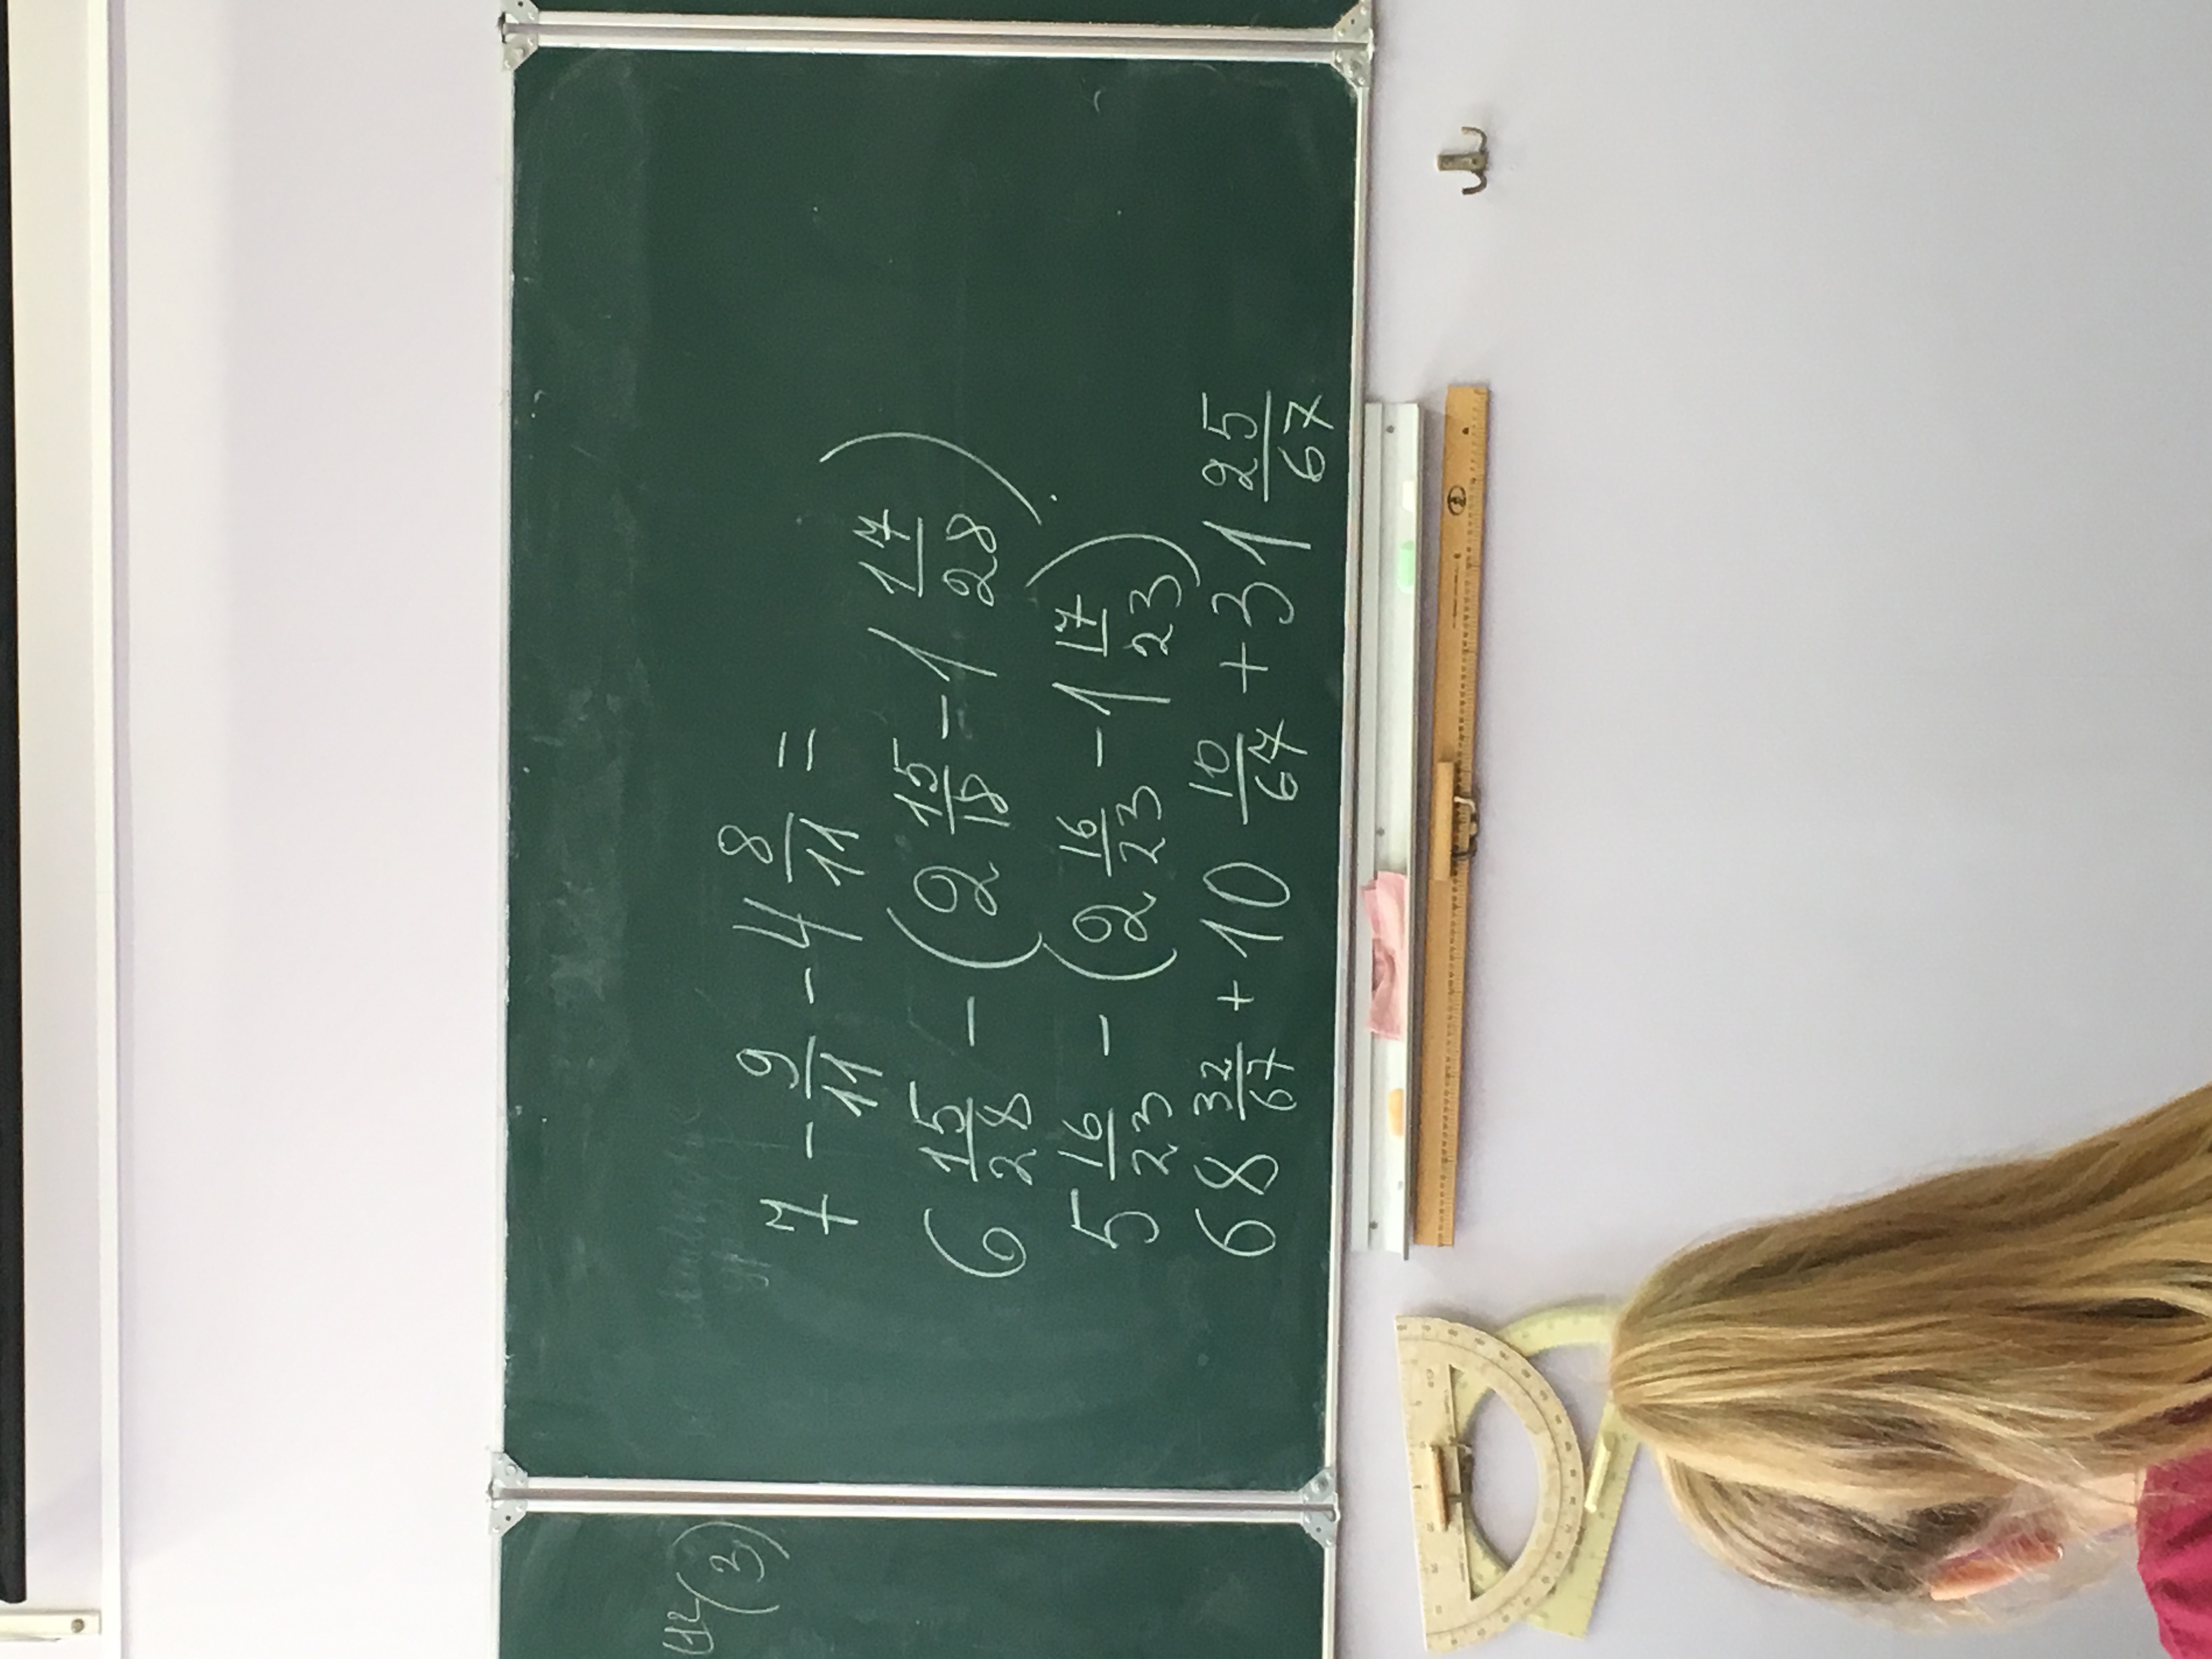 7 - 9/11 - 4 8/11 =
6 15/28 - (2 15/18 - 1 17/28)
5 16/23 - (2 16/23 - 1 17/23)
68 32/67 + 10 10/67 + 31 25/67
(3)